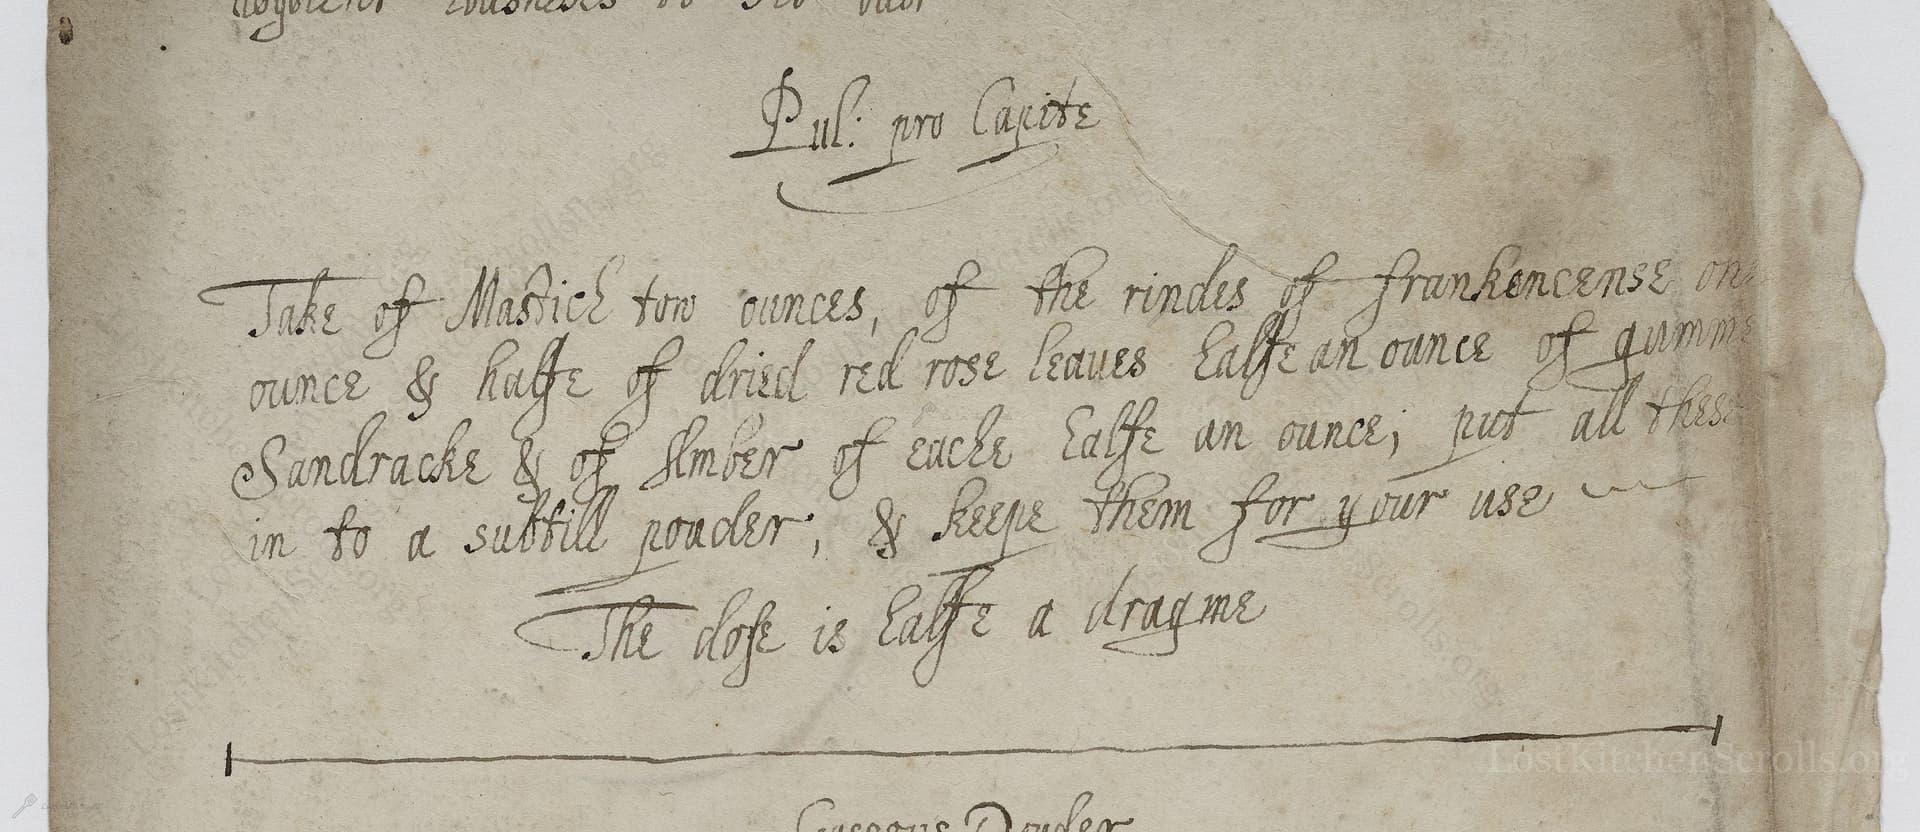 Pul: pro Capite
Take of Mastich tow ounces, of the rindes of frankencense one
ounce & halfe of dried red rose leaues halfe an ounce of gumme
Sandracke & of Amber of eache halfe an ounce; put all these
in to a subtill pouder, & keepe them for your use
The dose is halfe a dragme
Pouder
LostKitchenScrolls.org